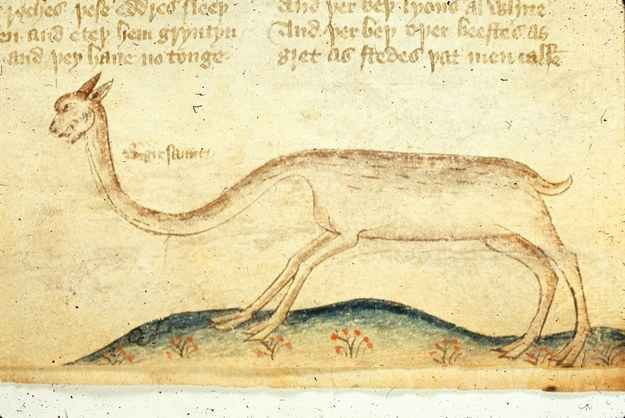 þese eddres sleeþ
and eteþ hem gryntyn
and þey haue no tonge
And þer beþ lyons al white
And þer beþ oþer beestes as
gret as stedes þat men calle